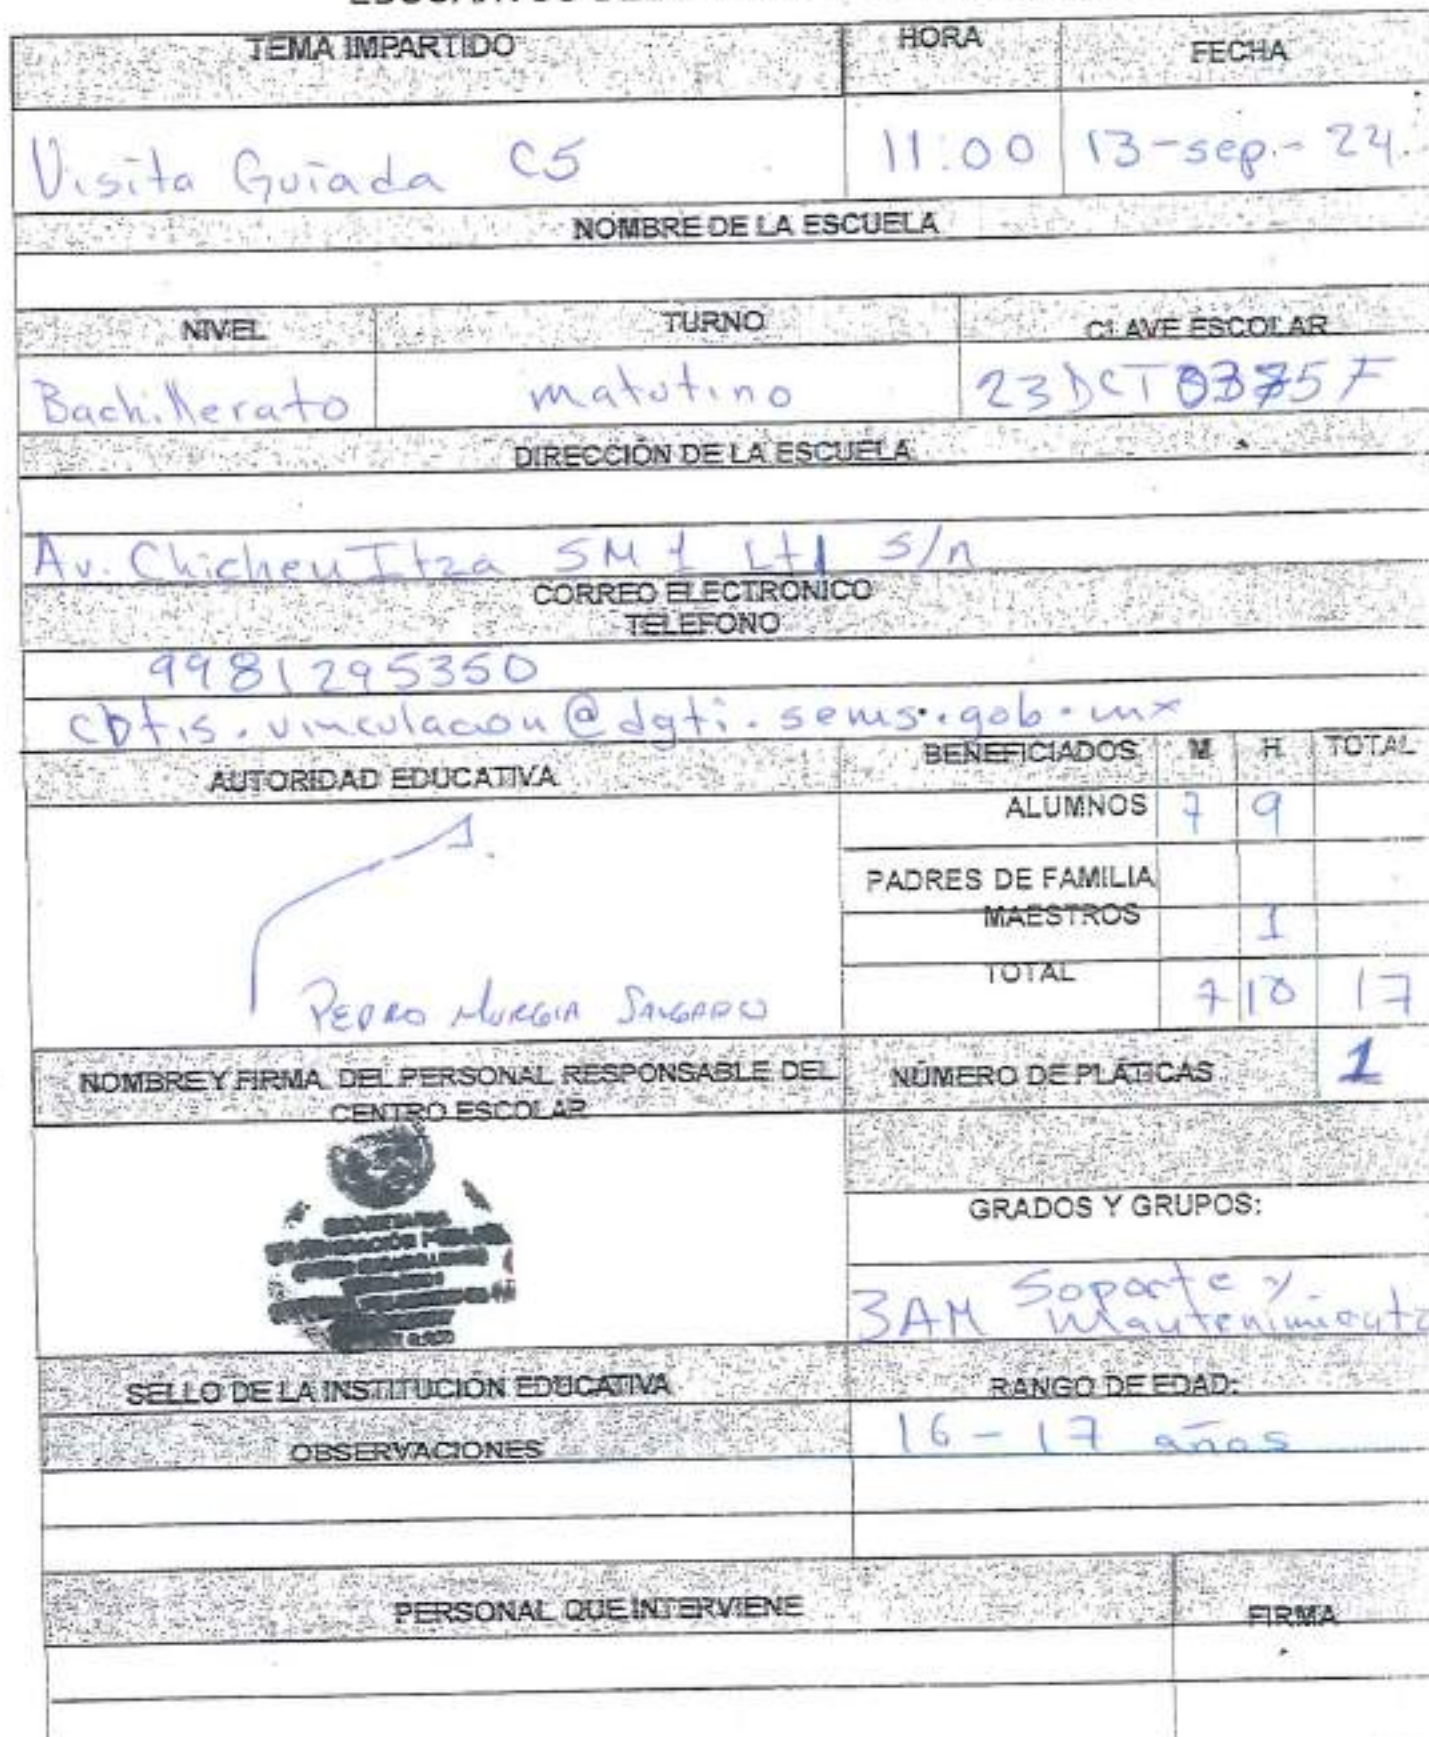 TEMA IMPARTIDO HORA FECHA
Visita Guiada C5 11:00 13-sep.-24.
NOMBRE DE LA ESCUELA
NIVEL TURNO CLAVE ESCOLAR
Bachillerato matutino 23DCT
DIRECCIÓN DE LA ESCUELA
Av. Chichen Itza SM 1 Lt1 s/n
CORREO ELECTRONICO
TELEFONO
9981295350
cbtis.vinculacion@dgti.sems.gob.mx
AUTORIDAD EDUCATIVA BENEFICIADOS M H TOTAL
ALUMNOS 7 9
PADRES DE FAMILIA
MAESTROS 1
TOTAL 7 10 17
PEDRO MURGIA SALGADO
NOMBRE Y FIRMA DEL PERSONAL RESPONSABLE DEL
CENTRO ESCOLAR
NÚMERO DE PLÁTICAS 1
GRADOS Y GRUPOS:
3AM Soporte y
Mantenimiento
SELLO DE LA INSTITUCIÓN EDUCATIVA RANGO DE EDAD:
OBSERVACIONES 16-17 años
PERSONAL QUE INTERVIENE FIRMA